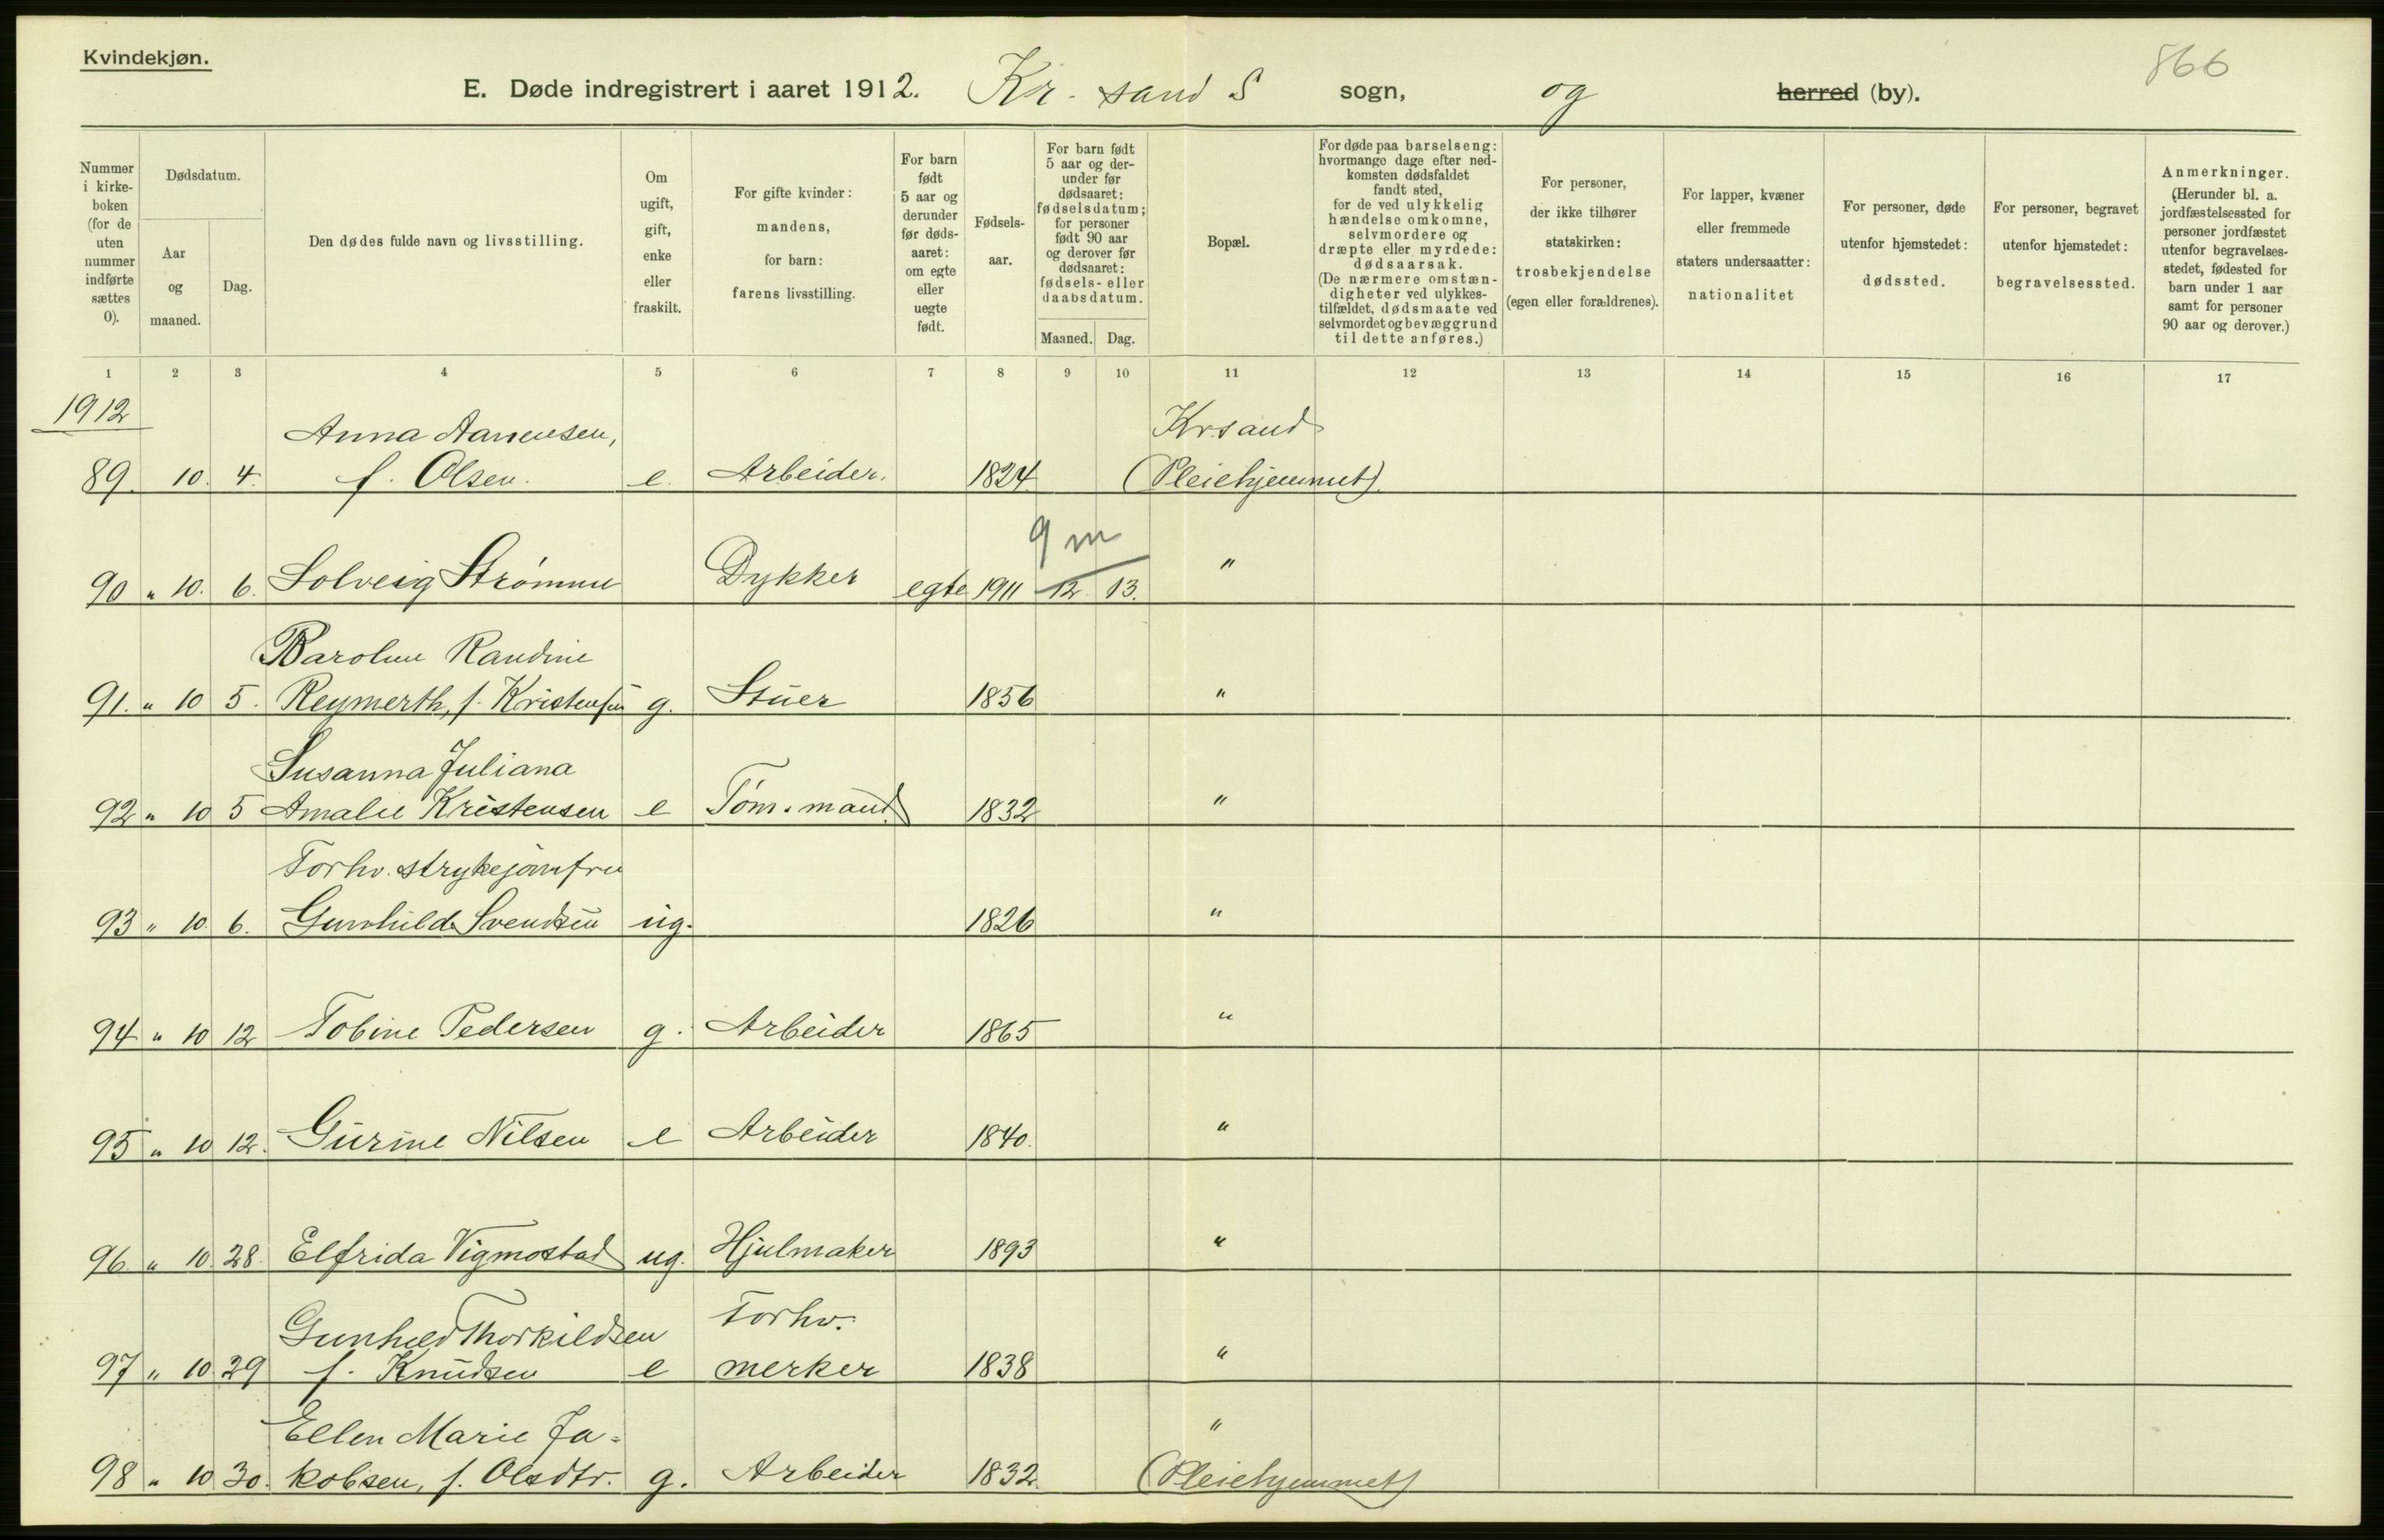 Kvindekjøn.
866
E. Døde indregistrert i aaret 1912. Kr. sand S sogn, og herred (by).
Nummer i kirke- boken (for de uten nummer indførte sættes 0).
Dødsdatum.
Aar og maaned.
Dag.
Den dødes fulde navn og livsstilling.
Om ugift, gift, enke eller fraskilt.
For gifte kvinder: mandens, for barn: farens livsstilling.
For barn født 5 aar og derunder før døds- aaret: om egte eller uegte født.
Fødsels- aar.
For barn født 5 aar og der- under før dødsaaret: fødselsdatum; for personer født 90 aar og derover før dødsaaret: fødsels- eller daabsdatum.
Maaned. Dag.
Bopæl.
For døde paa barselseng: hvormange dage efter ned- komsten dødsfaldet fandt sted, for de ved ulykkelig hændelse omkomne, selvmordere og dræpte eller myrdede: dødsaarsak. (De nærmere omstæn- digheter ved ulykkes- tilfældet, dødsmaate ved selvmordet og bevæggrund til dette anføres.)
For personer, der ikke tilhører statskirken: trosbekjendelse (egen eller forældrenes).
For lapper, kvæner eller fremmede staters undersaatter: nationalitet
For personer, døde utenfor hjemstedet: dødssted.
For personer, begravet utenfor hjemstedet: begravelsessted.
Anmerkninger. (Herunder bl. a. jordfæstelsessted for personer jordfæstet utenfor begravelses- stedet, fødested for barn under 1 aar samt for personer 90 aar og derover.)
1 2 3 4 5 6 7 8 9 10 11 12 13 14 15 16 17
1912
Anna Aanensen, Krsand
89. 10. 4. f. Olsen. e. Arbeider. 1824 (Pleiehjemmet).
9 m
90 " 10. 6. Solveig Strømme Dykker egte 1911 12 13. "
Baroline Randine
91. " 10 5. Reymerth, f. Kristensen g. Stuer 1856 "
Susanna Juliana
92 " 10 5 Amalie Kristensen e Tøm.mand 1832 "
Forhv. strykejomfru
93 " 10. 6. Gunhild Svendsen ug. 1826 "
94 " 10 12 Tobine Pedersen g. Arbeider 1865 "
95 " 10 12. Gurine Nilsen e Arbeider 1840. "
96. " 10. 28. Elfrida Vigmostad ug. Hjulmaker 1893 "
Gunhild Thorkildsen Forhv.
97 " 10. 29 f. Knudsen e merker 1838 "
Ellen Marie Ja- "
98 " 10 30. kobsen, f. Olsdtr. g. Arbeider 1832. (Pleiehjemmet)